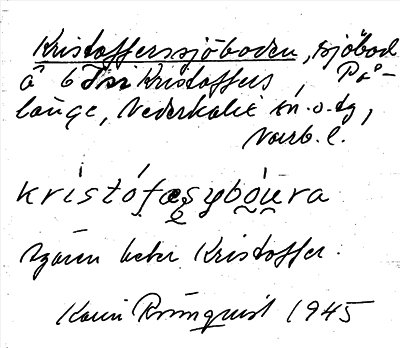 Kristofferssjöboden, sjöbod
å 6 Kristoffers På-
länge, Nederkalix sn. o. tg,
Norrb. l.
kristófæsybóura
Ägaren heter Kristoffer.
Karin Rönnquist 1945